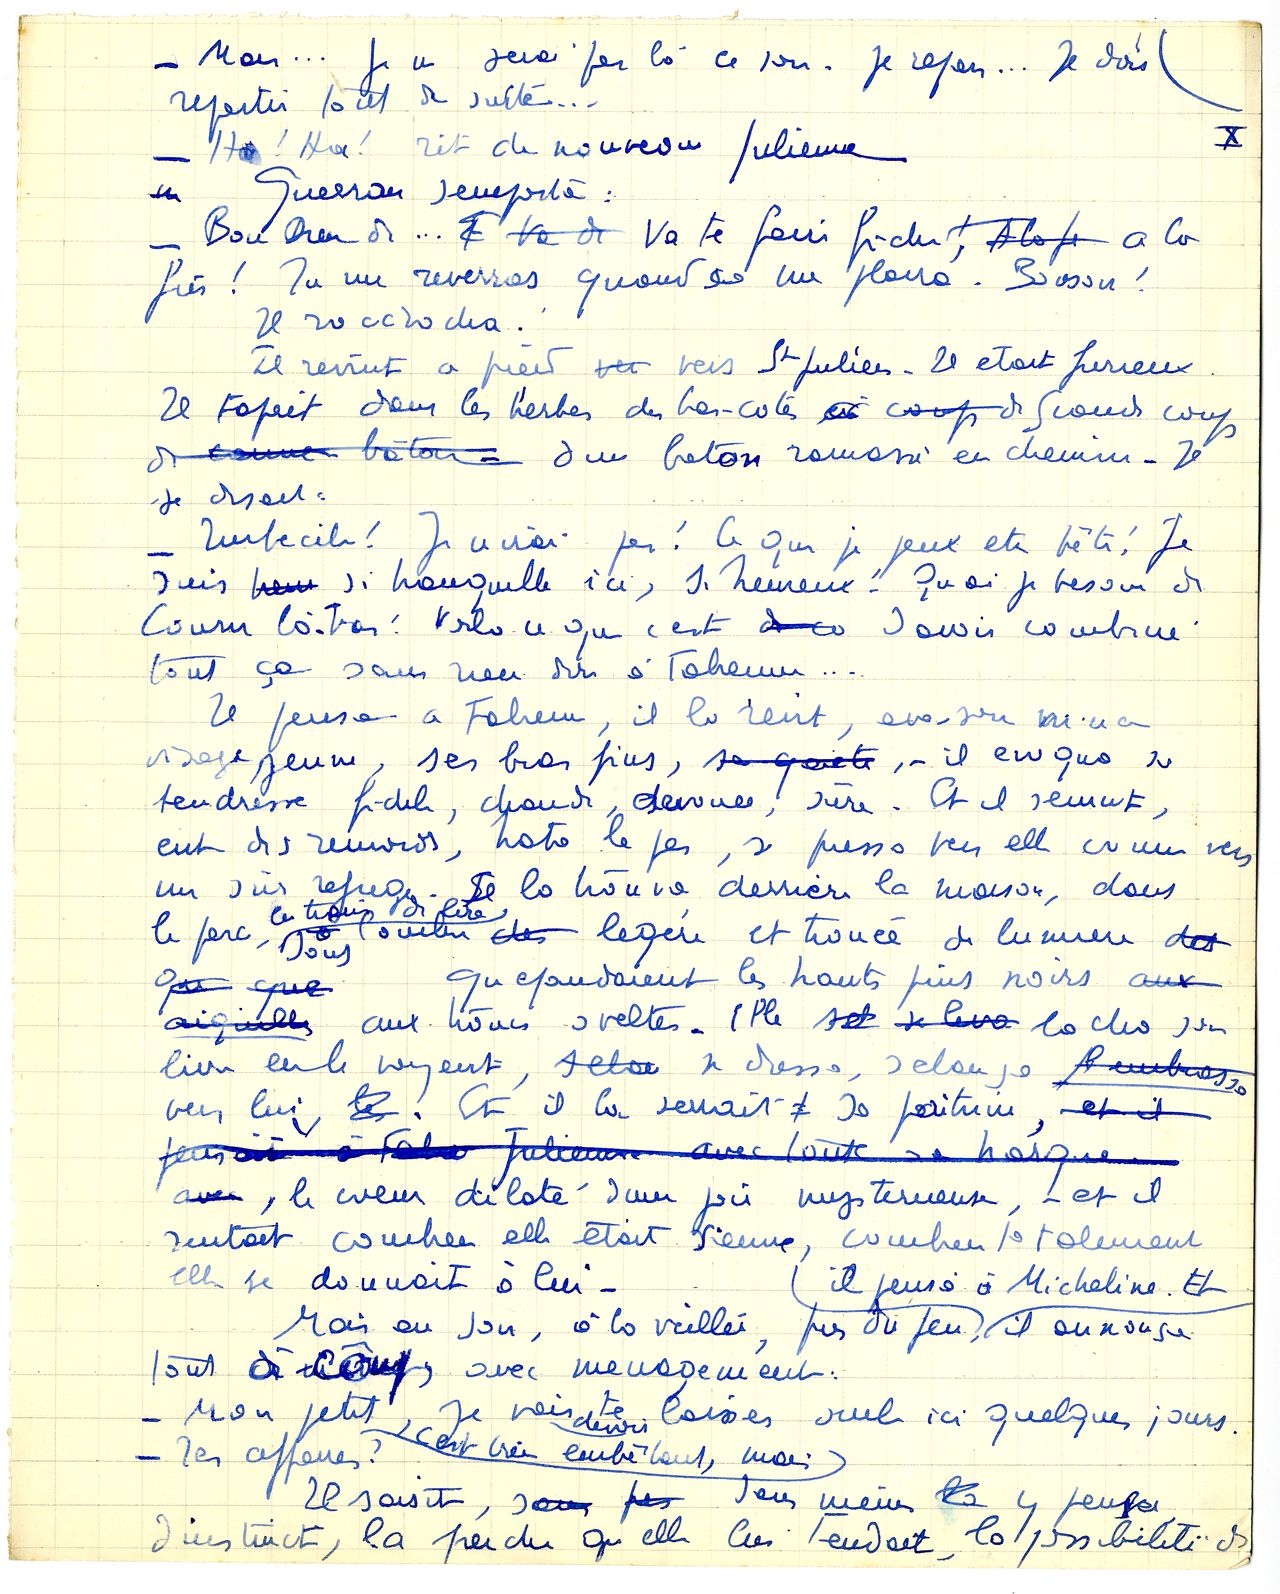 – Mais... Je ne serai pas là ce soir. Je repars... Je dois
repartir tout de suite...
– Ha ! Ha ! rit de nouveau Julienne
Guerran s'emporta :
– Bon Dieu de... Va te faire fiche, à la
fin ! Tu me reverras quand ça me plaira. Bonsoir !
Il raccrocha.
Il revint à pied vers St Julien. Il était furieux.
Il tapait dans les herbes des bas-cotés de grands coups
d'un bâton ramassé en chemin. Il
se disait :
– Imbécile ! Je n'irai pas ! Ce que je peux être bête ! Je
suis si tranquille ici, si heureux ! Qu'ai-je besoin de
courir là-bas ! Voilà ce que c'est d'avoir combiné
tout ça sans rien dire à Fabienne...
Il pensa à Fabienne, il la revit, avec son mince
visage jeune, ses bras fins, – il évoqua sa
tendresse fidèle, chaude, dévouée, sûre. Et il s'émut,
eut des remords, hâta le pas, se pressa vers elle comme vers
un sûr refuge. Il la trouva derrière la maison, dans
le parc, en train de lire,
sous l'ombre légère et trouée de lumière
qu'épandaient les hauts pins noirs
aux troncs sveltes. Elle lacha son
livre en le voyant, se dressa, s'élança
vers lui. Et il la serrait sa poitrine,
, le cœur dilaté d'une joie mystérieuse, – et il
sentait combien elle était sienne, combien totalement
elle se donnait à lui –
(il pensa à Micheline. Et
Mais au soir, à la veillée, près du feu, il annonça
tout à coup, avec ménagement :
– Mon petit, je vais te laisser seule ici quelques jours.
devoir
(c'est très embêtant, mais)
– Tes affaires ?
Il saisit, sans même y penser
d'instinct, la perche qu'elle lui tendait, la possibilité de